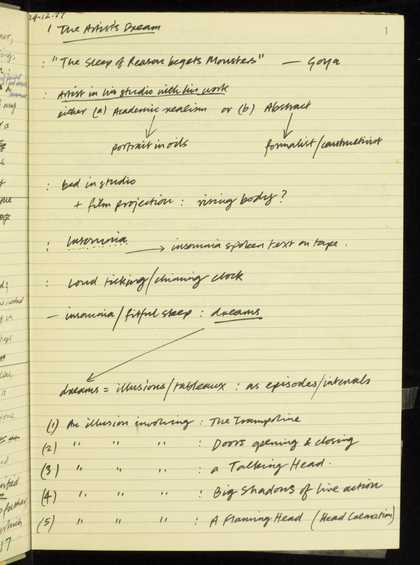 24-12-77
1 The Artist's Dream
1
: "The Sleep of Reason begets Monsters" — Goya
: Artist in his studio with his work
either (a) Academic realism or (b) Abstract
portrait in oils formalist/constructivist
: bed in studio
+ film projection : rising body?
: Insomnia → insomnia spoken text on tape.
: Loud ticking/chiming clock
— insomnia/fitful sleep : dreams
dreams = illusions/tableaux : as episodes/intervals
(1) An illusion involving : The Trampoline
(2) " " " : Doors opening & closing
(3) " " " : a Talking Head.
(4) " " " : Big Shadows of live action
(5) " " " : A Flaming Head (Head Cremation)